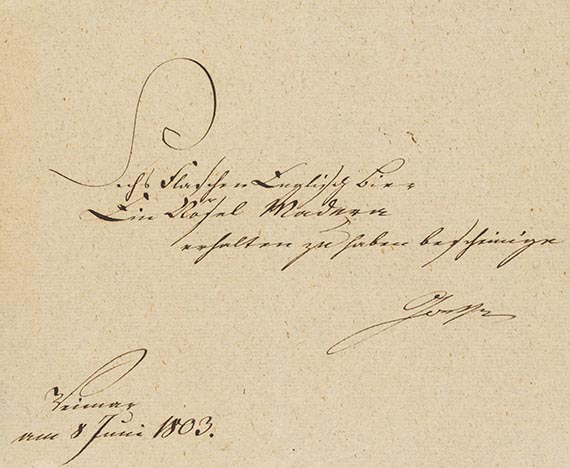 Sechs Flaschen Englisch Bier
Ein Nösel Madera
erhalten zu haben bescheinige
Goethe
Weimar
am 8 Juni 1803.